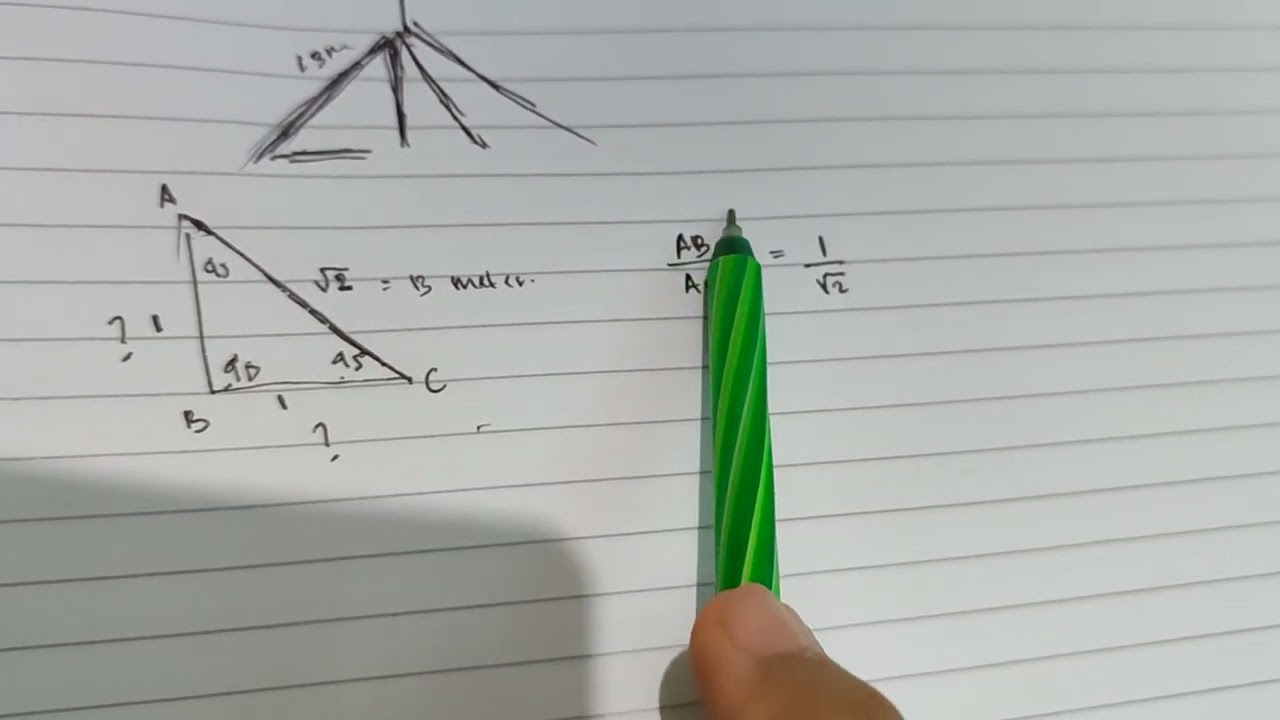 13m
A
45
√2 = 13 meter.
? 1
90 45
B
C
1
?
AB/A = 1/√2